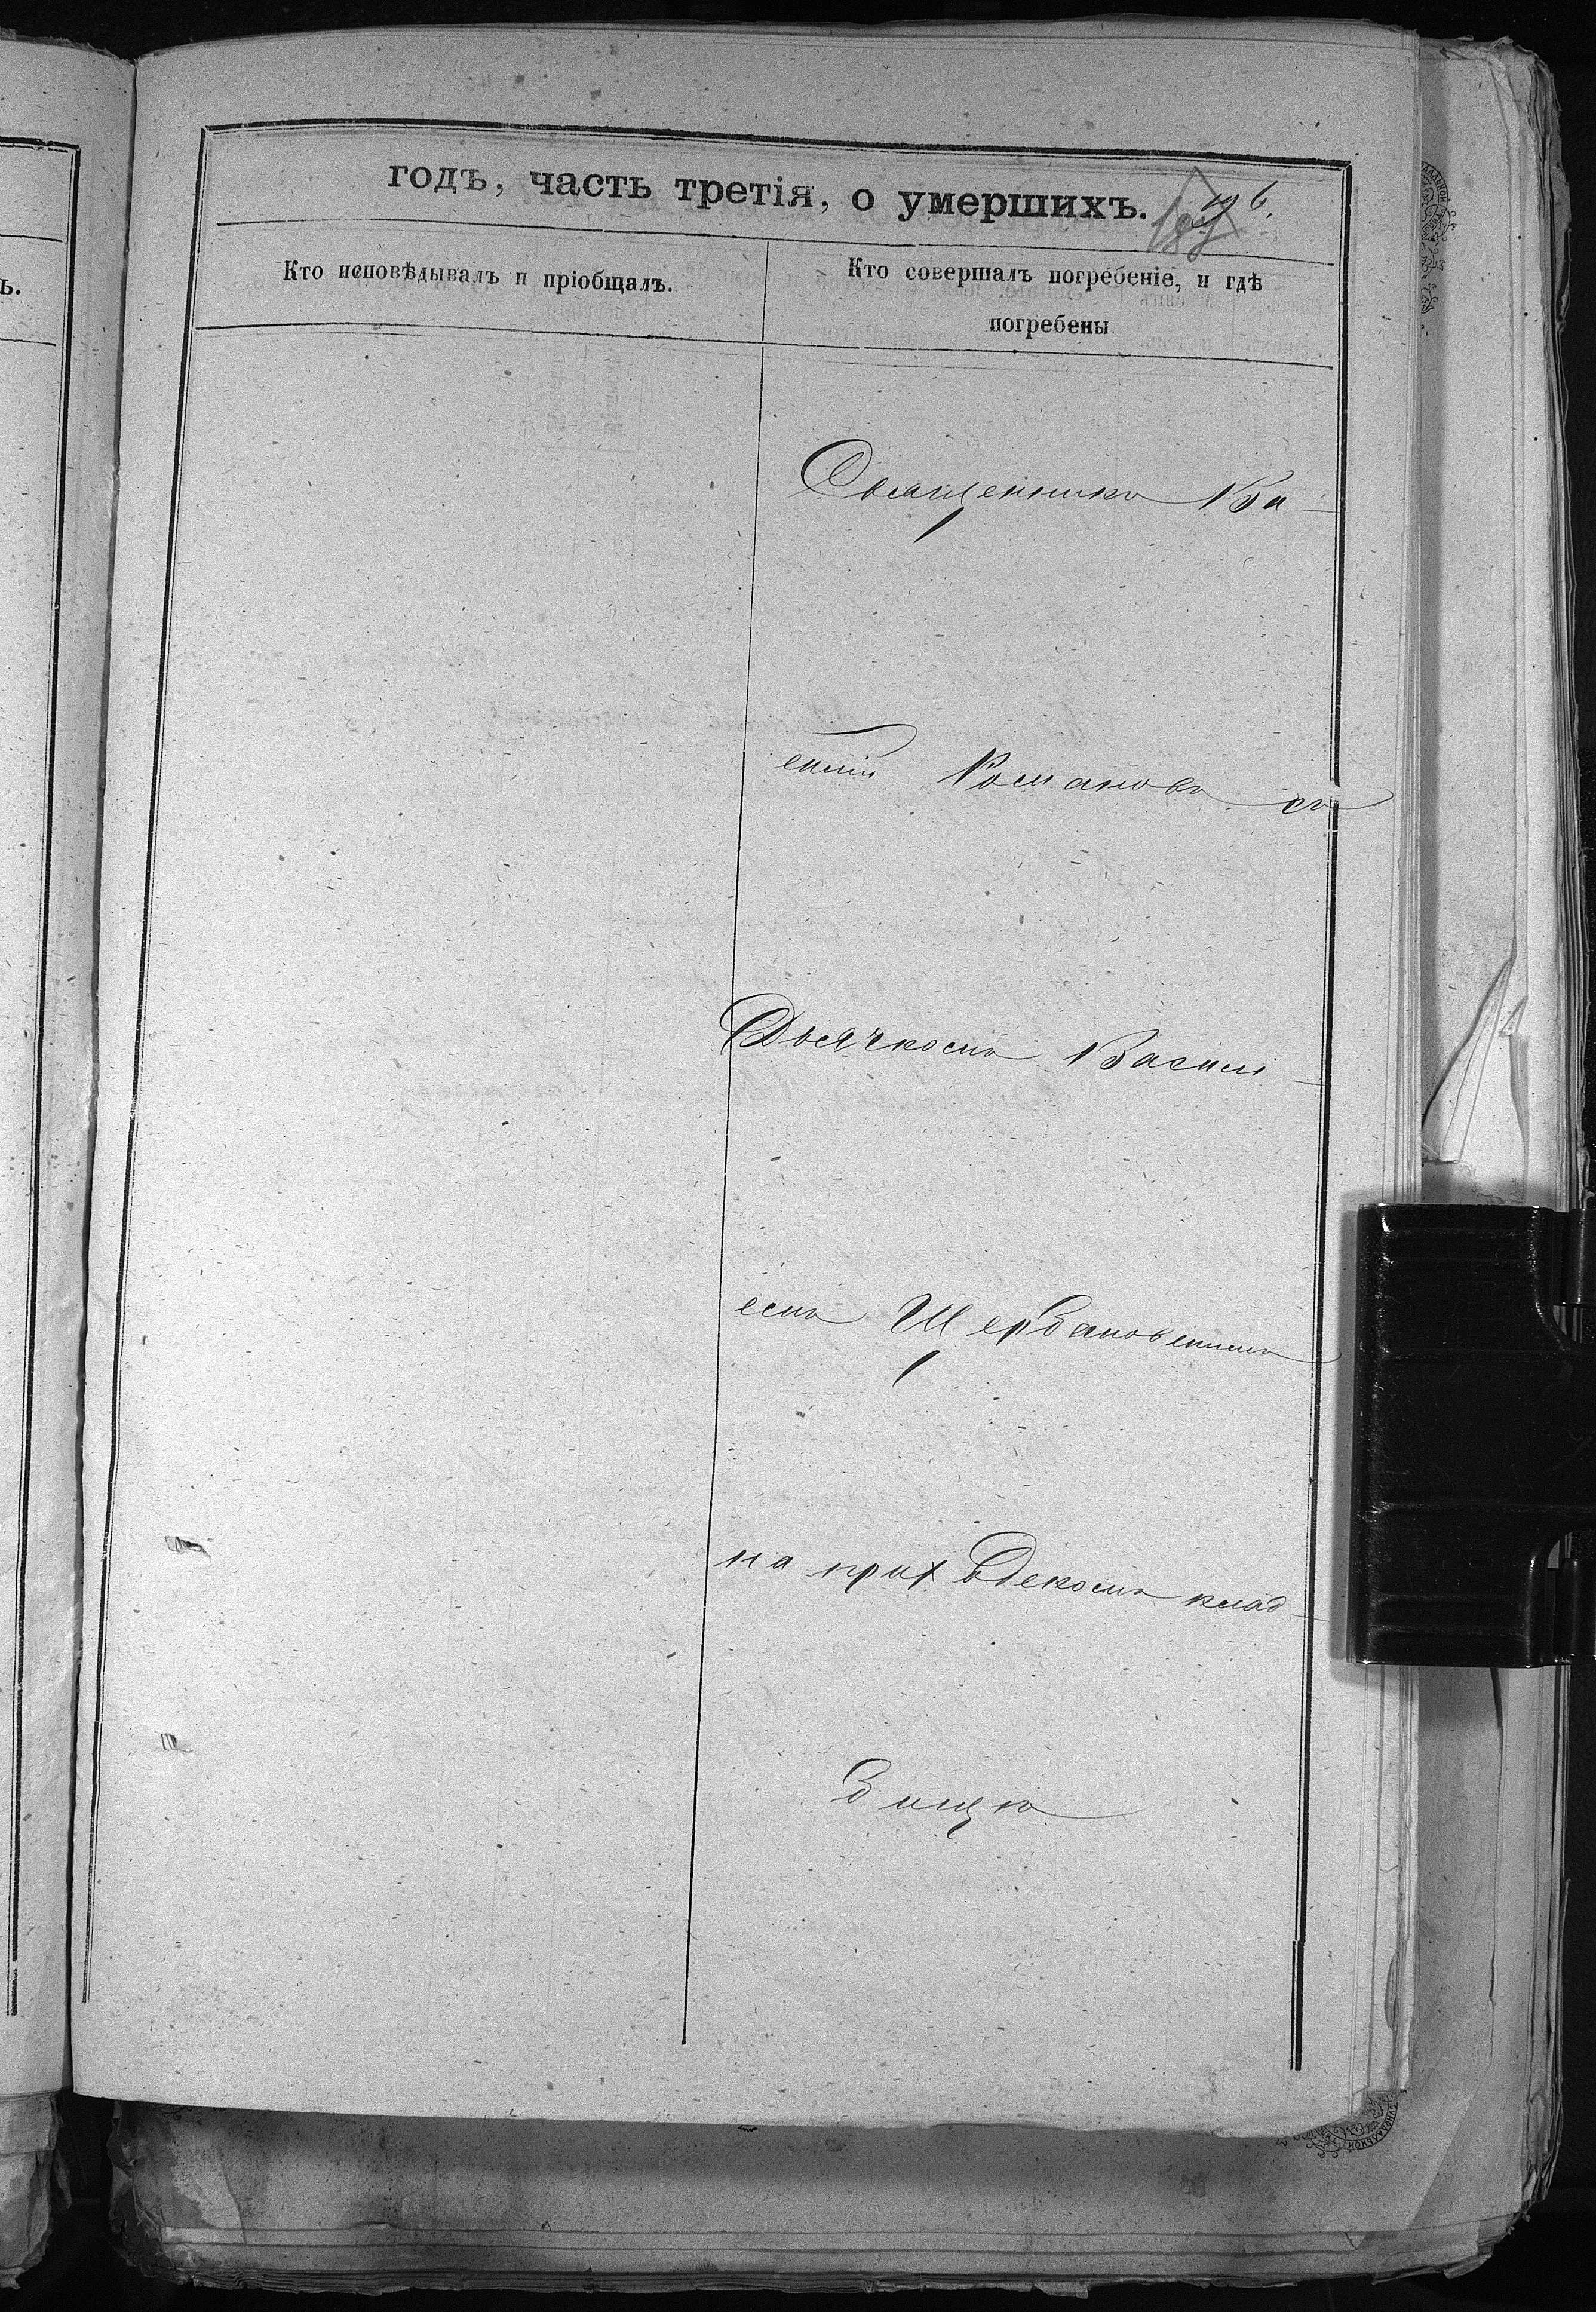 годъ, часть третія, о умершихъ.
196.
Кто исповѣдывалъ и пріобщалъ.
Кто совершалъ погребеніе, и гдѣ
погребены
Священникъ Ва-
силій Романовъ съ
Дьячкомъ Василі-
емъ Щербановскимъ
на приходскомъ клад-
бищѣ